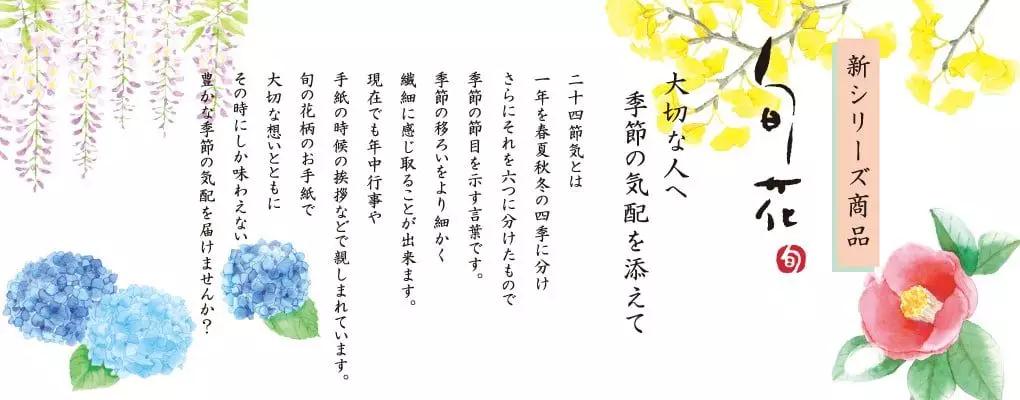 新シリーズ商品
旬花
旬
大切な人へ
季節の気配を添えて
二十四節気とは
一年を春夏秋冬の四季に分け
さらにそれを六つに分けたもので
季節の節目を示す言葉です。
季節の移ろいをより細かく
繊細に感じ取ることが出来ます。
現在でも年中行事や
手紙の時候の挨拶などで親しまれています。
旬の花柄のお手紙で
大切な想いとともに
その時にしか味わえない
豊かな季節の気配を届けませんか?